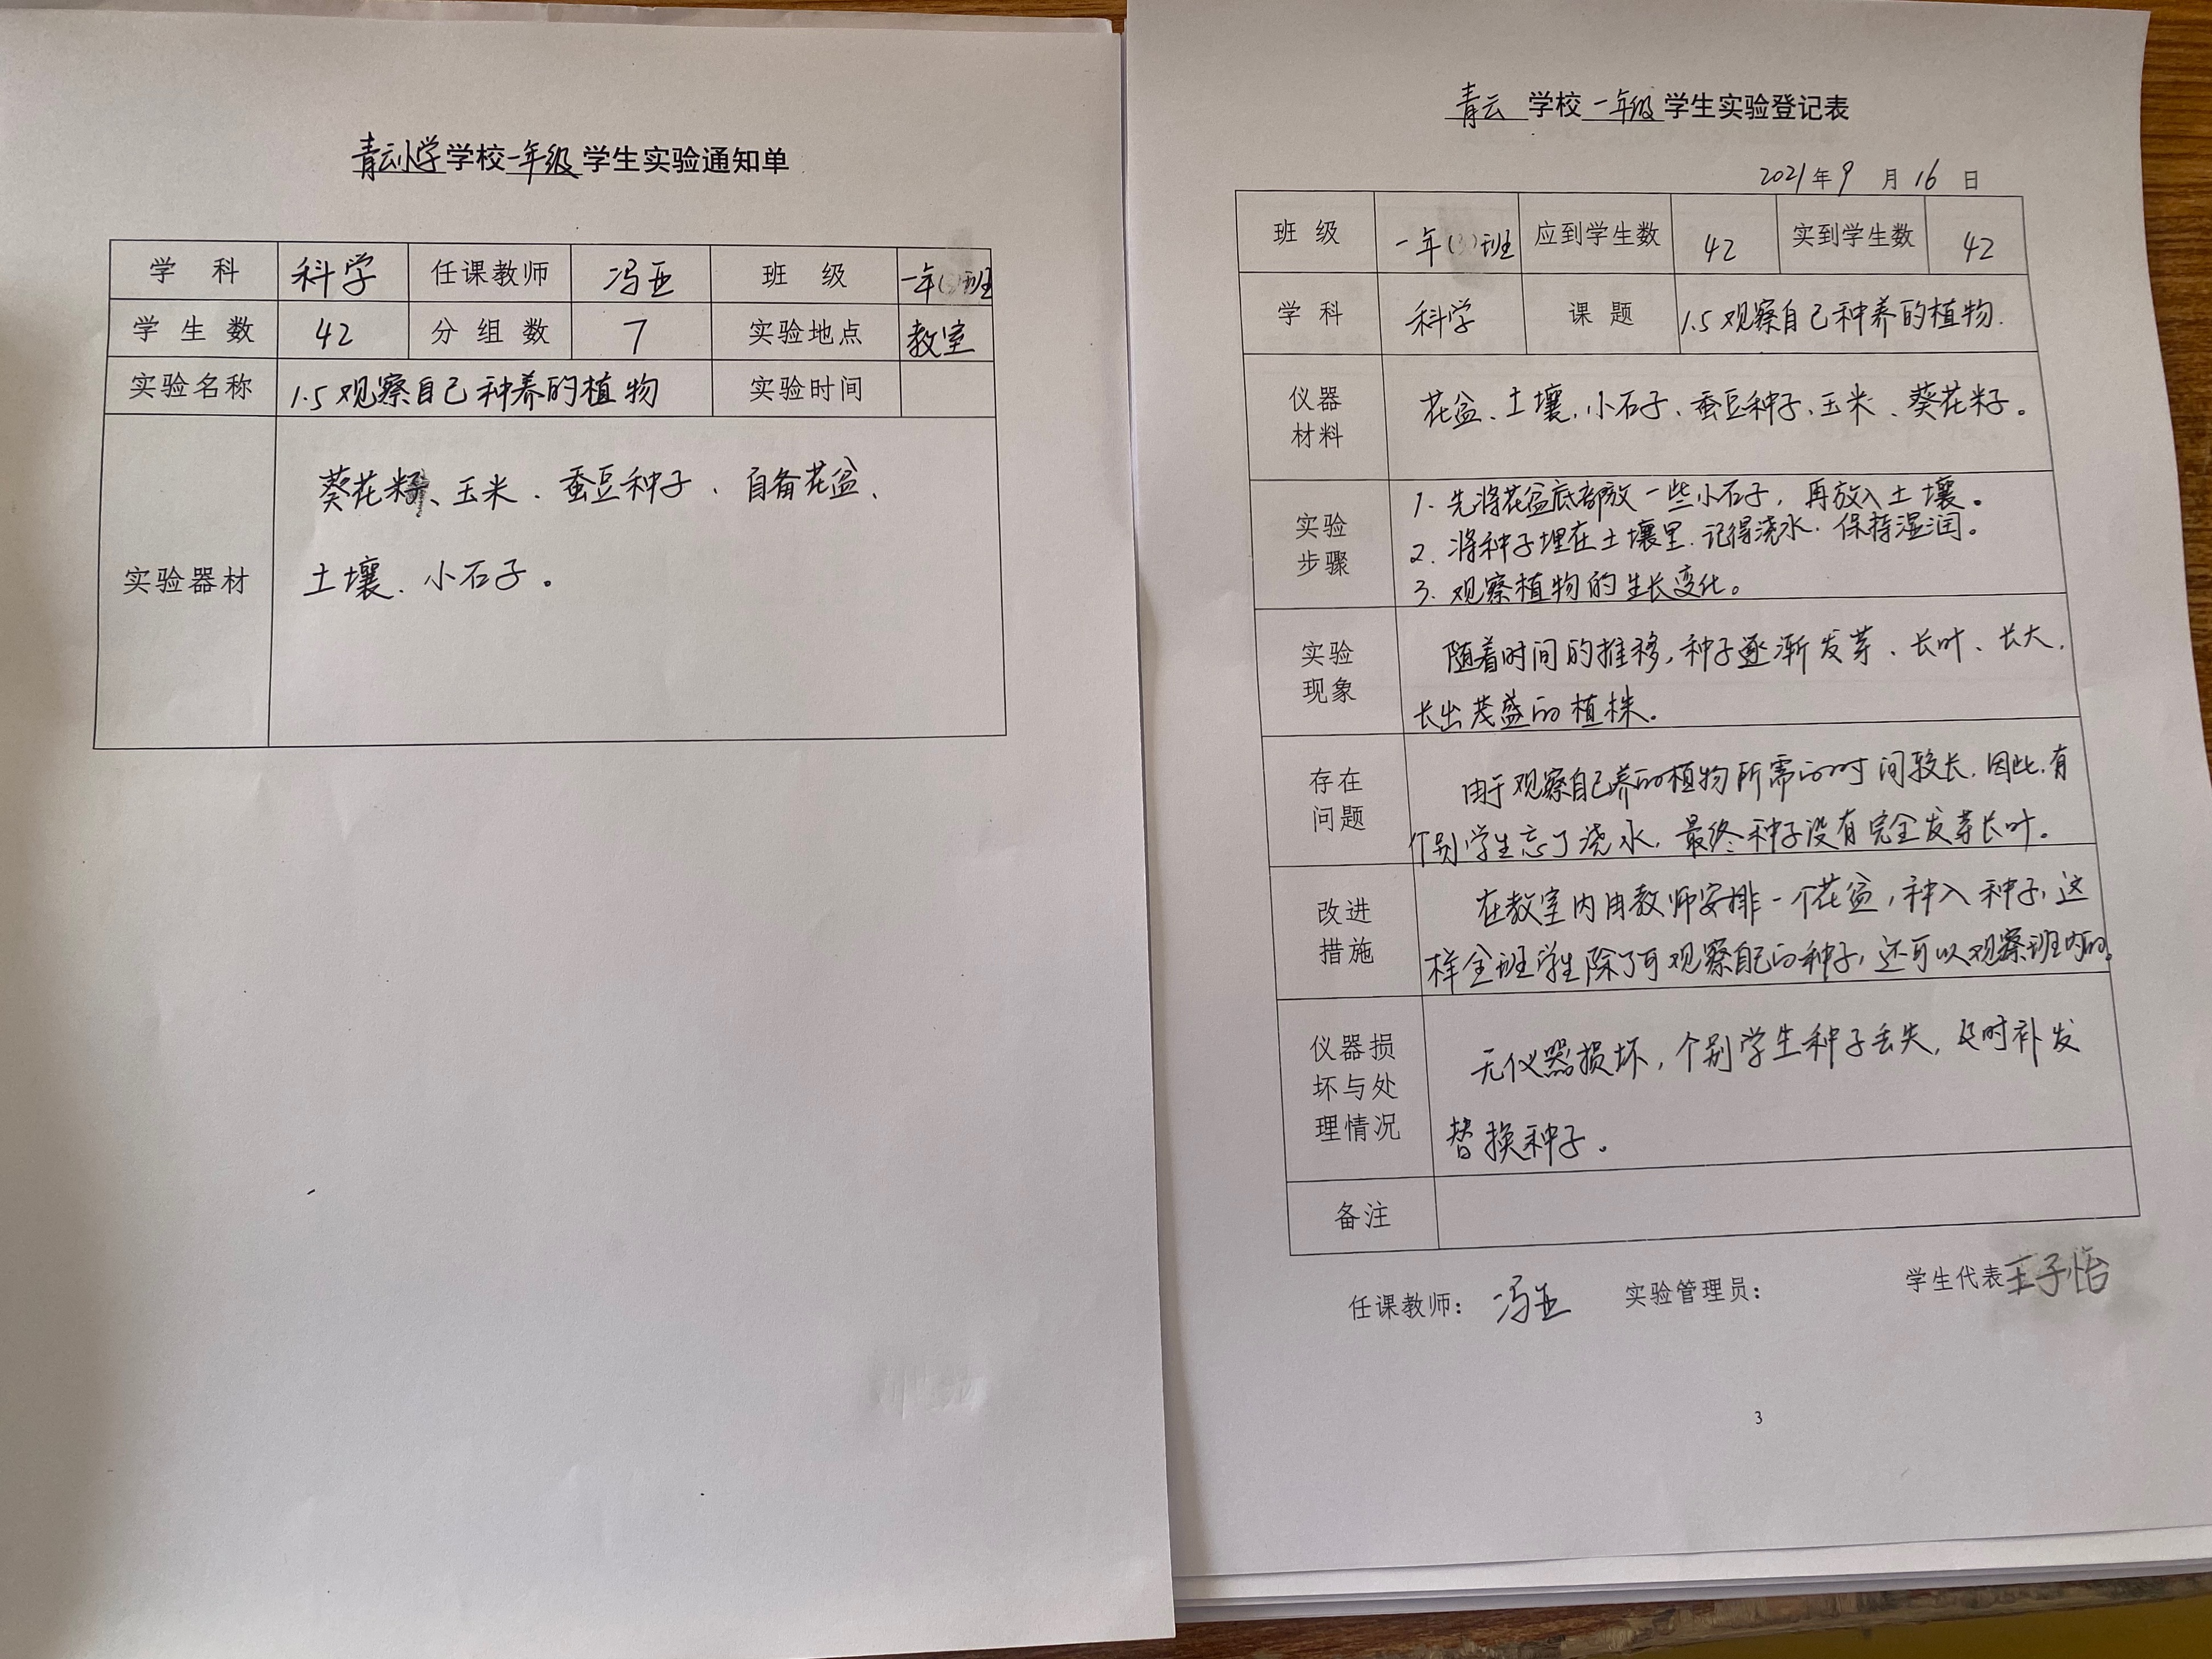 青云小学学校一年级学生实验通知单
学 科 科学 任课教师 冯亚 班 级 一年(3)班
学 生 数 42 分 组 数 7 实验地点 教室
实验名称 1.5观察自己种养的植物 实验时间
实验器材
葵花籽、玉米、蚕豆种子、自备花盆、
土壤、小石子。
青云 学校 一年级 学生实验登记表
2021年9月16日
班 级 一年(3)班 应到学生数 42 实到学生数 42
学 科 科学 课 题 1.5观察自己种养的植物.
仪器
材料
花盆、土壤、小石子、蚕豆种子、玉米、葵花籽。
实验
步骤
1. 先将花盆底部放一些小石子,再放入土壤。
2. 将种子埋在土壤里.记得浇水.保持湿润。
3. 观察植物的生长变化。
实验
现象
随着时间的推移,种子逐渐发芽、长叶、长大,
长出茂盛的植株。
存在
问题
由于观察自己养的植物所需的时间较长.因此.有
个别学生忘了浇水,最终种子没有完全发芽长叶。
改进
措施
在教室内由教师安排一个花盆,种入种子,这
样全班学生除了可观察自己的种子,还可以观察班内的。
仪器损
坏与处
理情况
无仪器损坏,个别学生种子丢失,及时补发
替换种子。
备注
任课教师: 冯亚 实验管理员: 学生代表王子怡
3